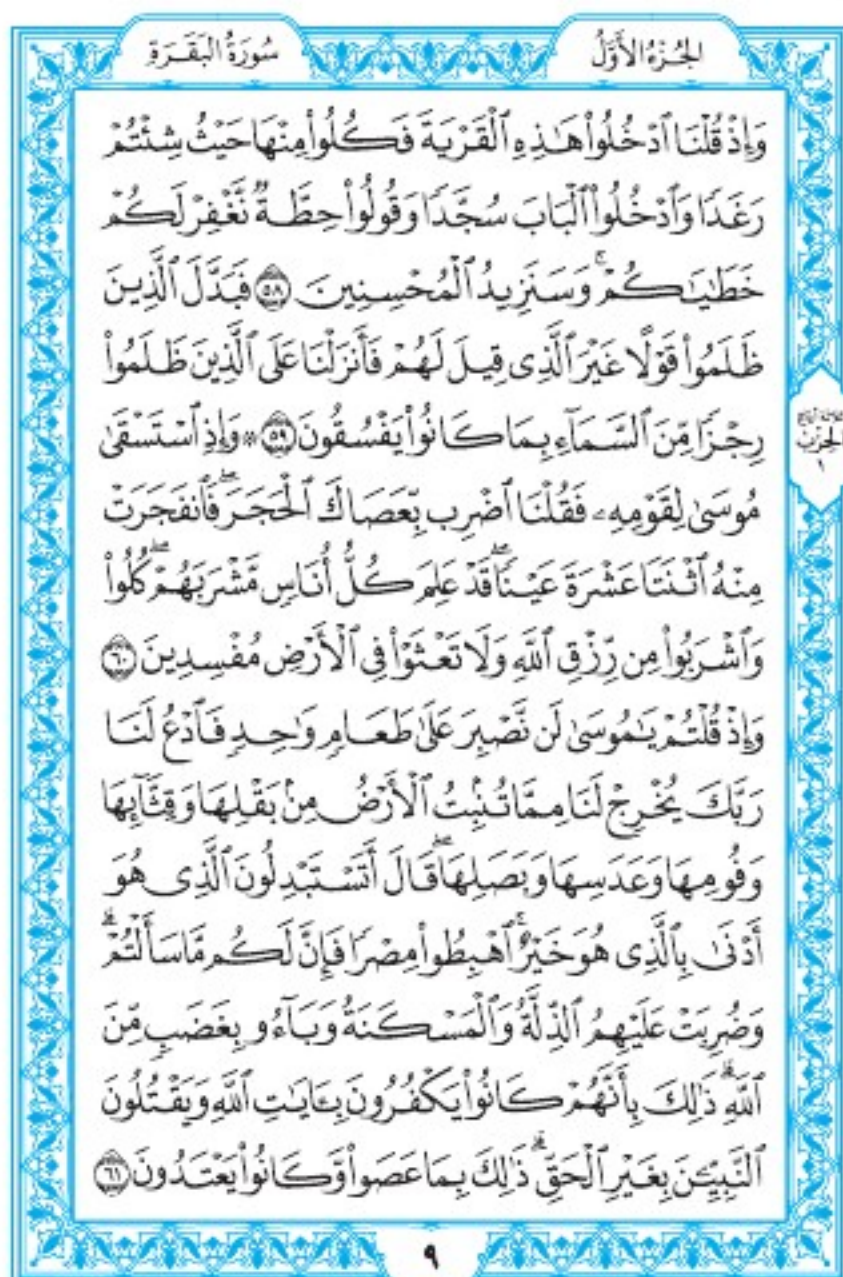 الجُزْءُ الأَوَّلُ
سُورَةُ البَقَرَةِ
وَإِذْ قُلْنَا ٱدْخُلُوا۟ هَٰذِهِ ٱلْقَرْيَةَ فَكُلُوا۟ مِنْهَا حَيْثُ شِئْتُمْ
رَغَدًا وَٱدْخُلُوا۟ ٱلْبَابَ سُجَّدًا وَقُولُوا۟ حِطَّةٌ نَّغْفِرْ لَكُمْ
خَطَٰيَٰكُمْ ۚ وَسَنَزِيدُ ٱلْمُحْسِنِينَ ٥٨ فَبَدَّلَ ٱلَّذِينَ
ظَلَمُوا۟ قَوْلًا غَيْرَ ٱلَّذِى قِيلَ لَهُمْ فَأَنزَلْنَا عَلَى ٱلَّذِينَ ظَلَمُوا۟
رِجْزًا مِّنَ ٱلسَّمَآءِ بِمَا كَانُوا۟ يَفْسُقُونَ ٥٩ ۞ وَإِذِ ٱسْتَسْقَىٰ
مُوسَىٰ لِقَوْمِهِۦ فَقُلْنَا ٱضْرِب بِّعَصَاكَ ٱلْحَجَرَ ۖ فَٱنفَجَرَتْ
مِنْهُ ٱثْنَتَا عَشْرَةَ عَيْنًا ۖ قَدْ عَلِمَ كُلُّ أُنَاسٍ مَّشْرَبَهُمْ ۖ كُلُوا۟
وَٱشْرَبُوا۟ مِن رِّزْقِ ٱللَّهِ وَلَا تَعْثَوْا۟ فِى ٱلْأَرْضِ مُفْسِدِينَ ٦٠
وَإِذْ قُلْتُمْ يَٰمُوسَىٰ لَن نَّصْبِرَ عَلَىٰ طَعَامٍ وَٰحِدٍ فَٱدْعُ لَنَا
رَبَّكَ يُخْرِجْ لَنَا مِمَّا تُنۢبِتُ ٱلْأَرْضُ مِنۢ بَقْلِهَا وَقِثَّآئِهَا
وَفُومِهَا وَعَدَسِهَا وَبَصَلِهَا ۖ قَالَ أَتَسْتَبْدِلُونَ ٱلَّذِى هُوَ
أَدْنَىٰ بِٱلَّذِى هُوَ خَيْرٌ ۚ ٱهْبِطُوا۟ مِصْرًا فَإِنَّ لَكُم مَّا سَأَلْتُمْ ۗ
وَضُرِبَتْ عَلَيْهِمُ ٱلذِّلَّةُ وَٱلْمَسْكَنَةُ وَبَآءُو بِغَضَبٍ مِّنَ
ٱللَّهِ ۗ ذَٰلِكَ بِأَنَّهُمْ كَانُوا۟ يَكْفُرُونَ بِـَٔايَٰتِ ٱللَّهِ وَيَقْتُلُونَ
ٱلنَّبِيِّـۧنَ بِغَيْرِ ٱلْحَقِّ ۗ ذَٰلِكَ بِمَا عَصَوا۟ وَّكَانُوا۟ يَعْتَدُونَ ٦١
الحِزْبِ
١
٩